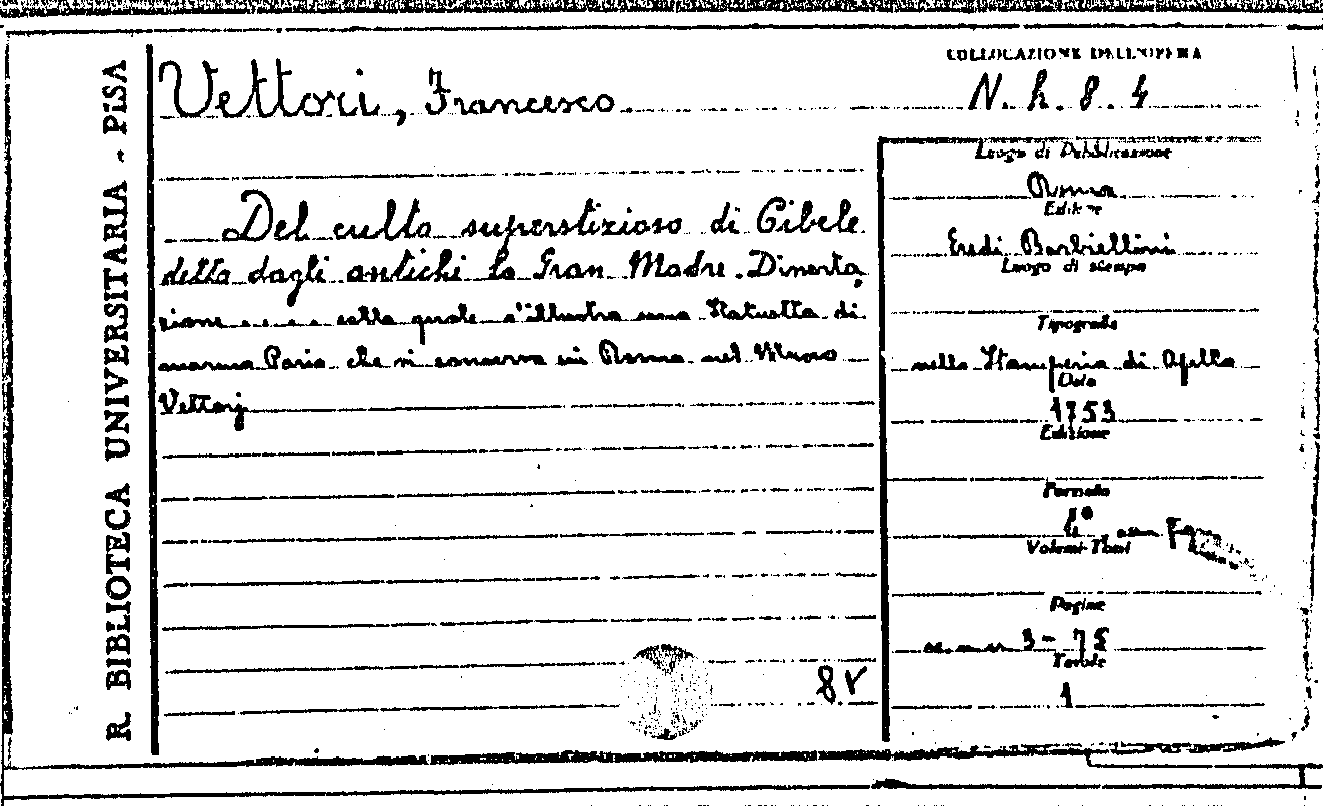 R. BIBLIOTECA UNIVERSITARIA - PISA
COLLOCAZIONE DELL'OPERA
Vettori, Francesco.
N. h. 8. 4
Del culto superstizioso di Cibele
detta dagli antichi la Gran Madre. Disserta
zione . . . . . sulla quale s'illustra una Statuetta di
marmo Pario che si conserva in Roma nel Museo
Vettorj
8 V
Luogo di Pubblicazione
Roma
Editore
Eredi Barbiellini
Luogo di stampa
Tipografia
nella Stamperia di Apollo
Data
1753
Edizione
Formato
4°
Volumi-Tomi
Pagine
3 - 75
Tavole
1